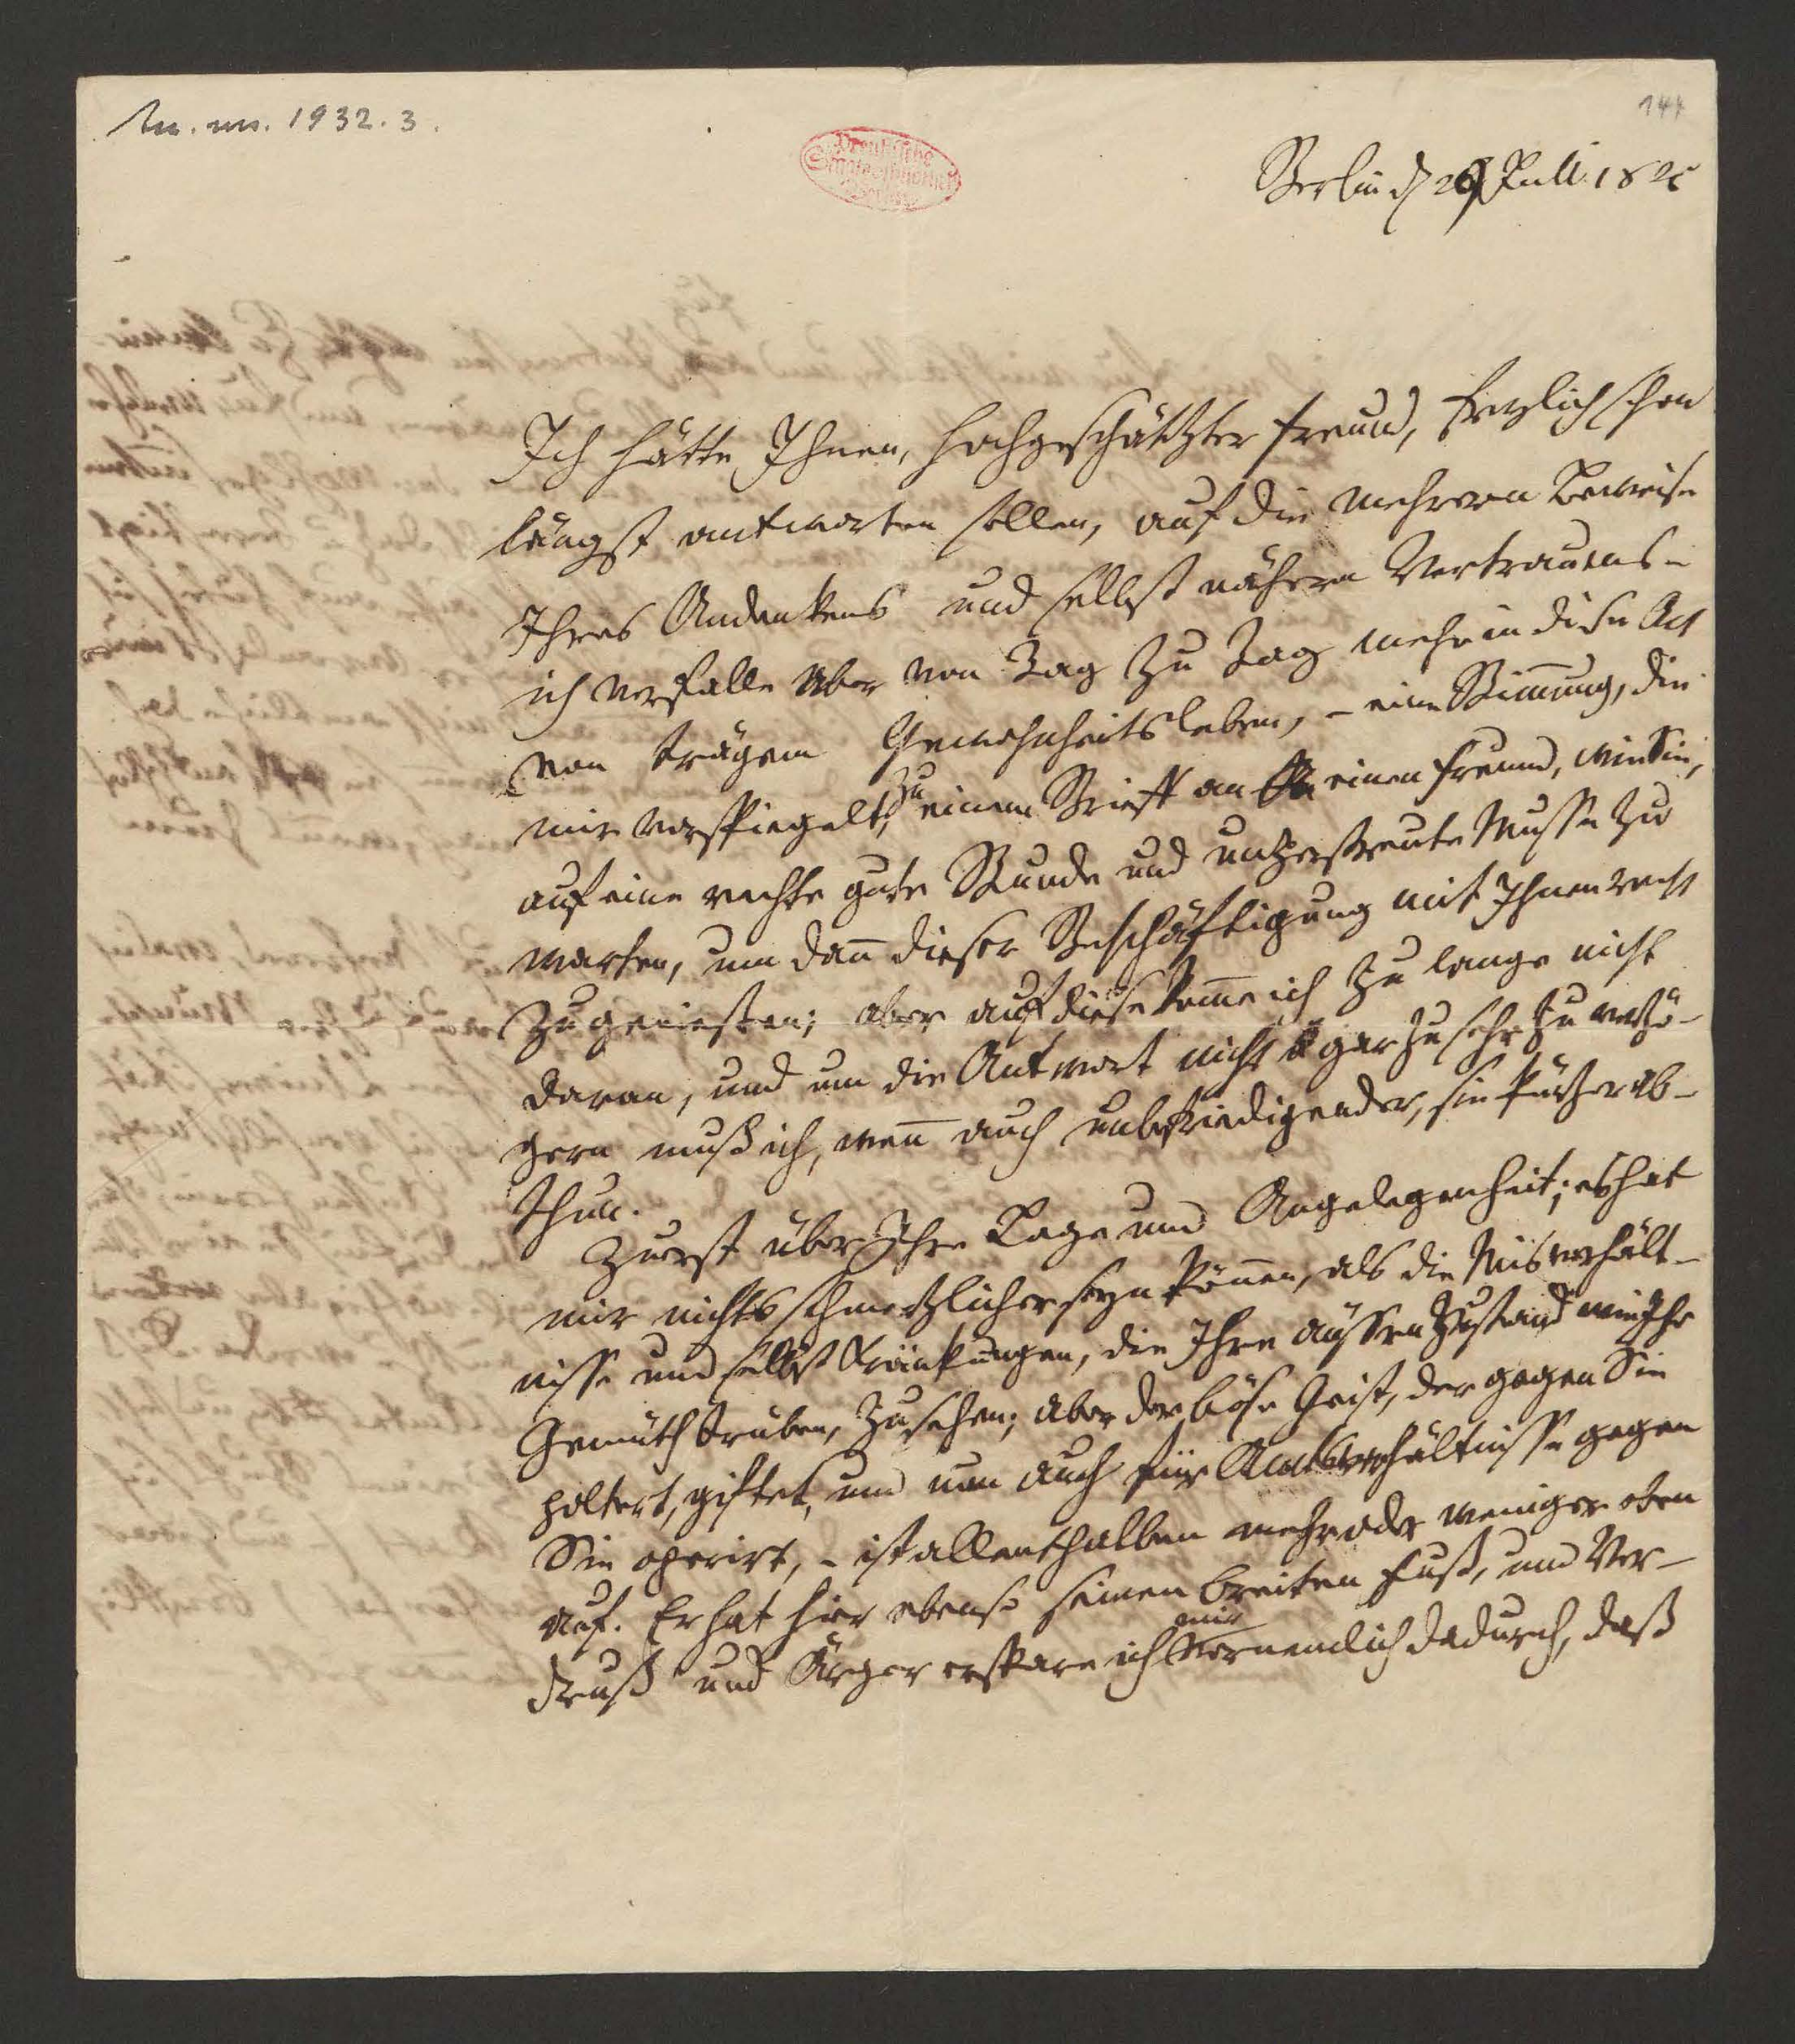 acc. ms. 1932. 3.
144
Preußische
Staatsbibliothek
Berlin
Berlin d 29 Juli 1825
Ich hätte Ihnen, hochgeschätzter Freund, freylich schon
längst antworten sollen, auf die mehrern Beweise
Ihres Andenkens und selbst nähern Vertrauens –
ich verfalle aber von Tag zu Tag mehr in diese Art
von trägem Gewohnheitsleben, – eine Stim̅ung, die
mir vorspiegelt, zu einem Brieff an einen Freund, wie Sie,
auf eine rechte gute Stunde und unzerstreute Musse zu
warten, um dan̅ dieser Beschäftigung mit Ihnen recht
zu geniessen; aber auf diese kom̅e ich zu lange nicht
daran, und um die Antwort nicht gar zu sehr zu verzö-
gern muß ich, wen̅ auch unbefriedigender, sie kürzer ab-
thun.
Zuerst über Ihre Lage und Angelegenheit; es hat
mir nichts schmertzlicher seyn kön̅en, als die Misverhält-
nisse und selbst Kränkungen, die Ihren äussern Zustand wie Ihr
Gemüth trüben, zu sehen; aber der böse Geist, der gegen Sie
poltert, giftet, und nun auch für Amtsverhältnisse gegen
Sie operirt, – ist allenthalben mehr oder weniger oben
auf. Er hat hier ebenso seinen breiten Fuß, und Ver-
druß und Ärger erspare ich mir vornemlich dadurch, daß